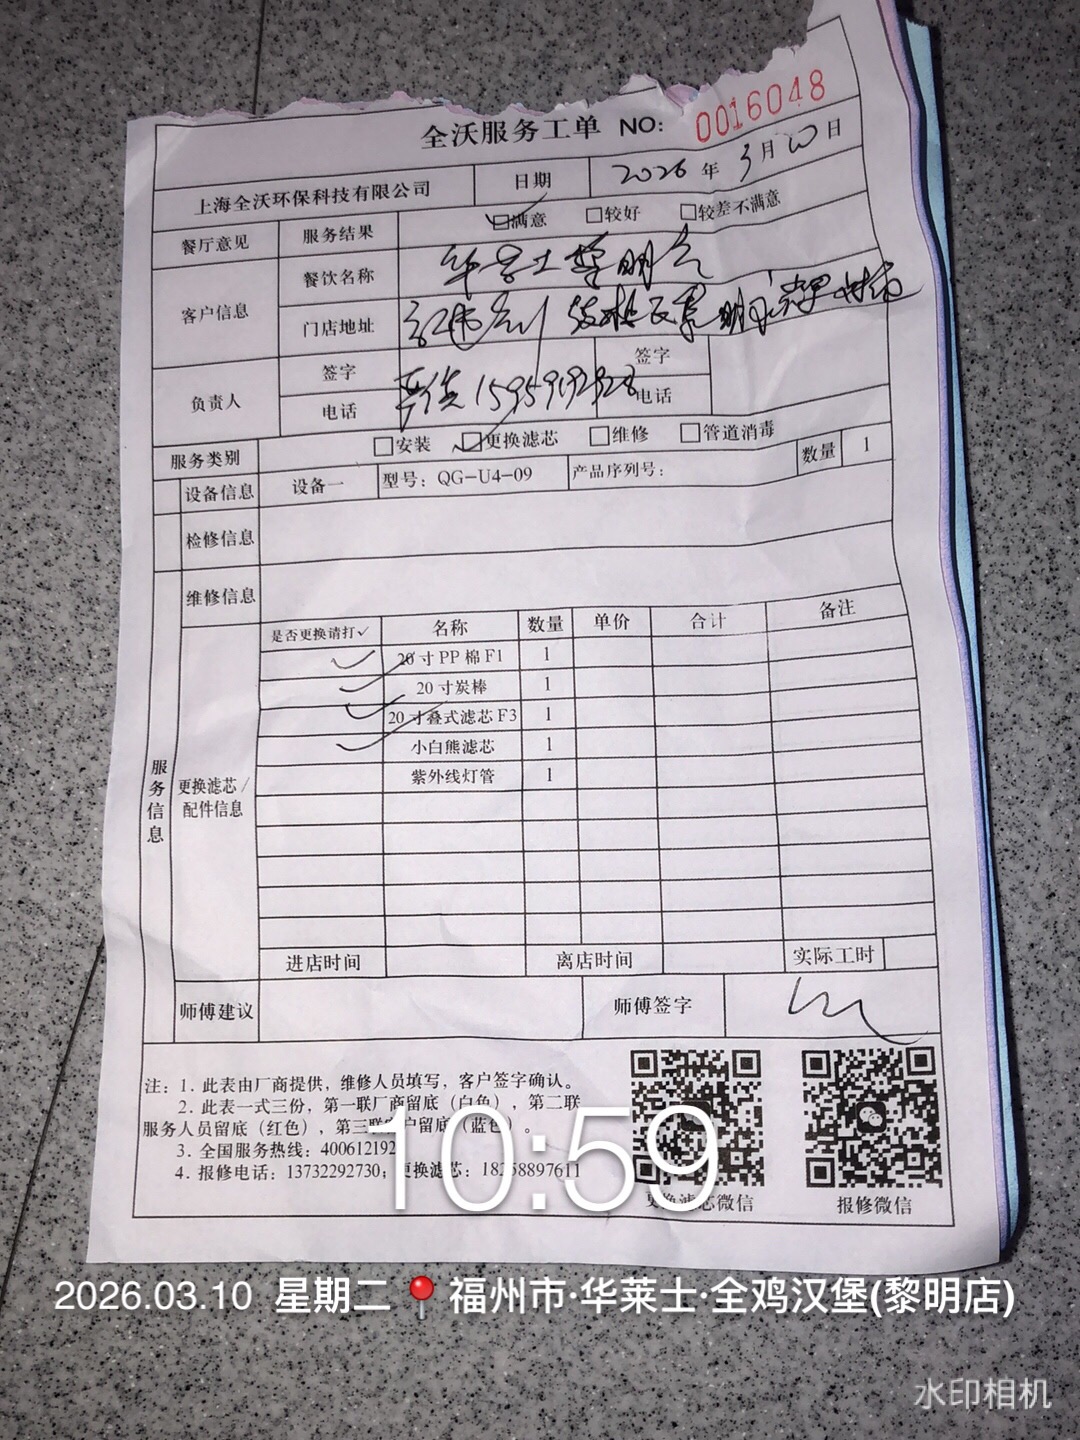 全沃服务工单 NO: 0016048
上海全沃环保科技有限公司 日期 2026年3月10日
餐厅意见 服务结果 ☑满意 □较好 □较差不满意
客户信息 餐饮名称 华莱士黎明店
门店地址
负责人 签字 签字
电话 15959192328 电话
服务类别 □安装 ☑更换滤芯 □维修 □管道消毒
设备信息 设备一 型号：QG-U4-09 产品序列号： 数量 1
检修信息
维修信息
服务信息
更换滤芯/配件信息
是否更换请打✓ 名称 数量 单价 合计 备注
✓ 20寸PP棉F1 1
✓ 20寸炭棒 1
✓ 20寸叠式滤芯F3 1
✓ 小白熊滤芯 1
紫外线灯管 1
进店时间 离店时间 实际工时
师傅建议 师傅签字
注：1. 此表由厂商提供，维修人员填写，客户签字确认。
2. 此表一式三份，第一联厂商留底（白色），第二联
服务人员留底（红色），第三联客户留底（蓝色）。
3. 全国服务热线：400612192
4. 报修电话：13732292730；更换滤芯：18358897611
更换滤芯微信 报修微信
10:59
2026.03.10 星期二 福州市·华莱士·全鸡汉堡(黎明店)
水印相机